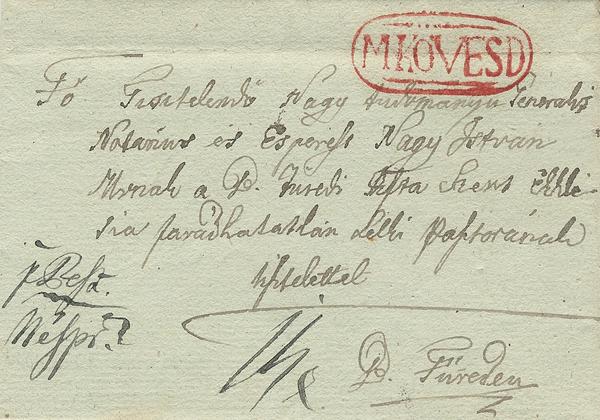 M:KÖVESD
Fő Tisztelendő Nagy tudományu Generalis
Notárius és Esperest Nagy István
Urnak a B. Füredi Tiszta Szent Ekkle
sia fáradhatatlan Lelki Pásztorának
tisztelettel
p Pest.
Veszpr.
B. Füreden